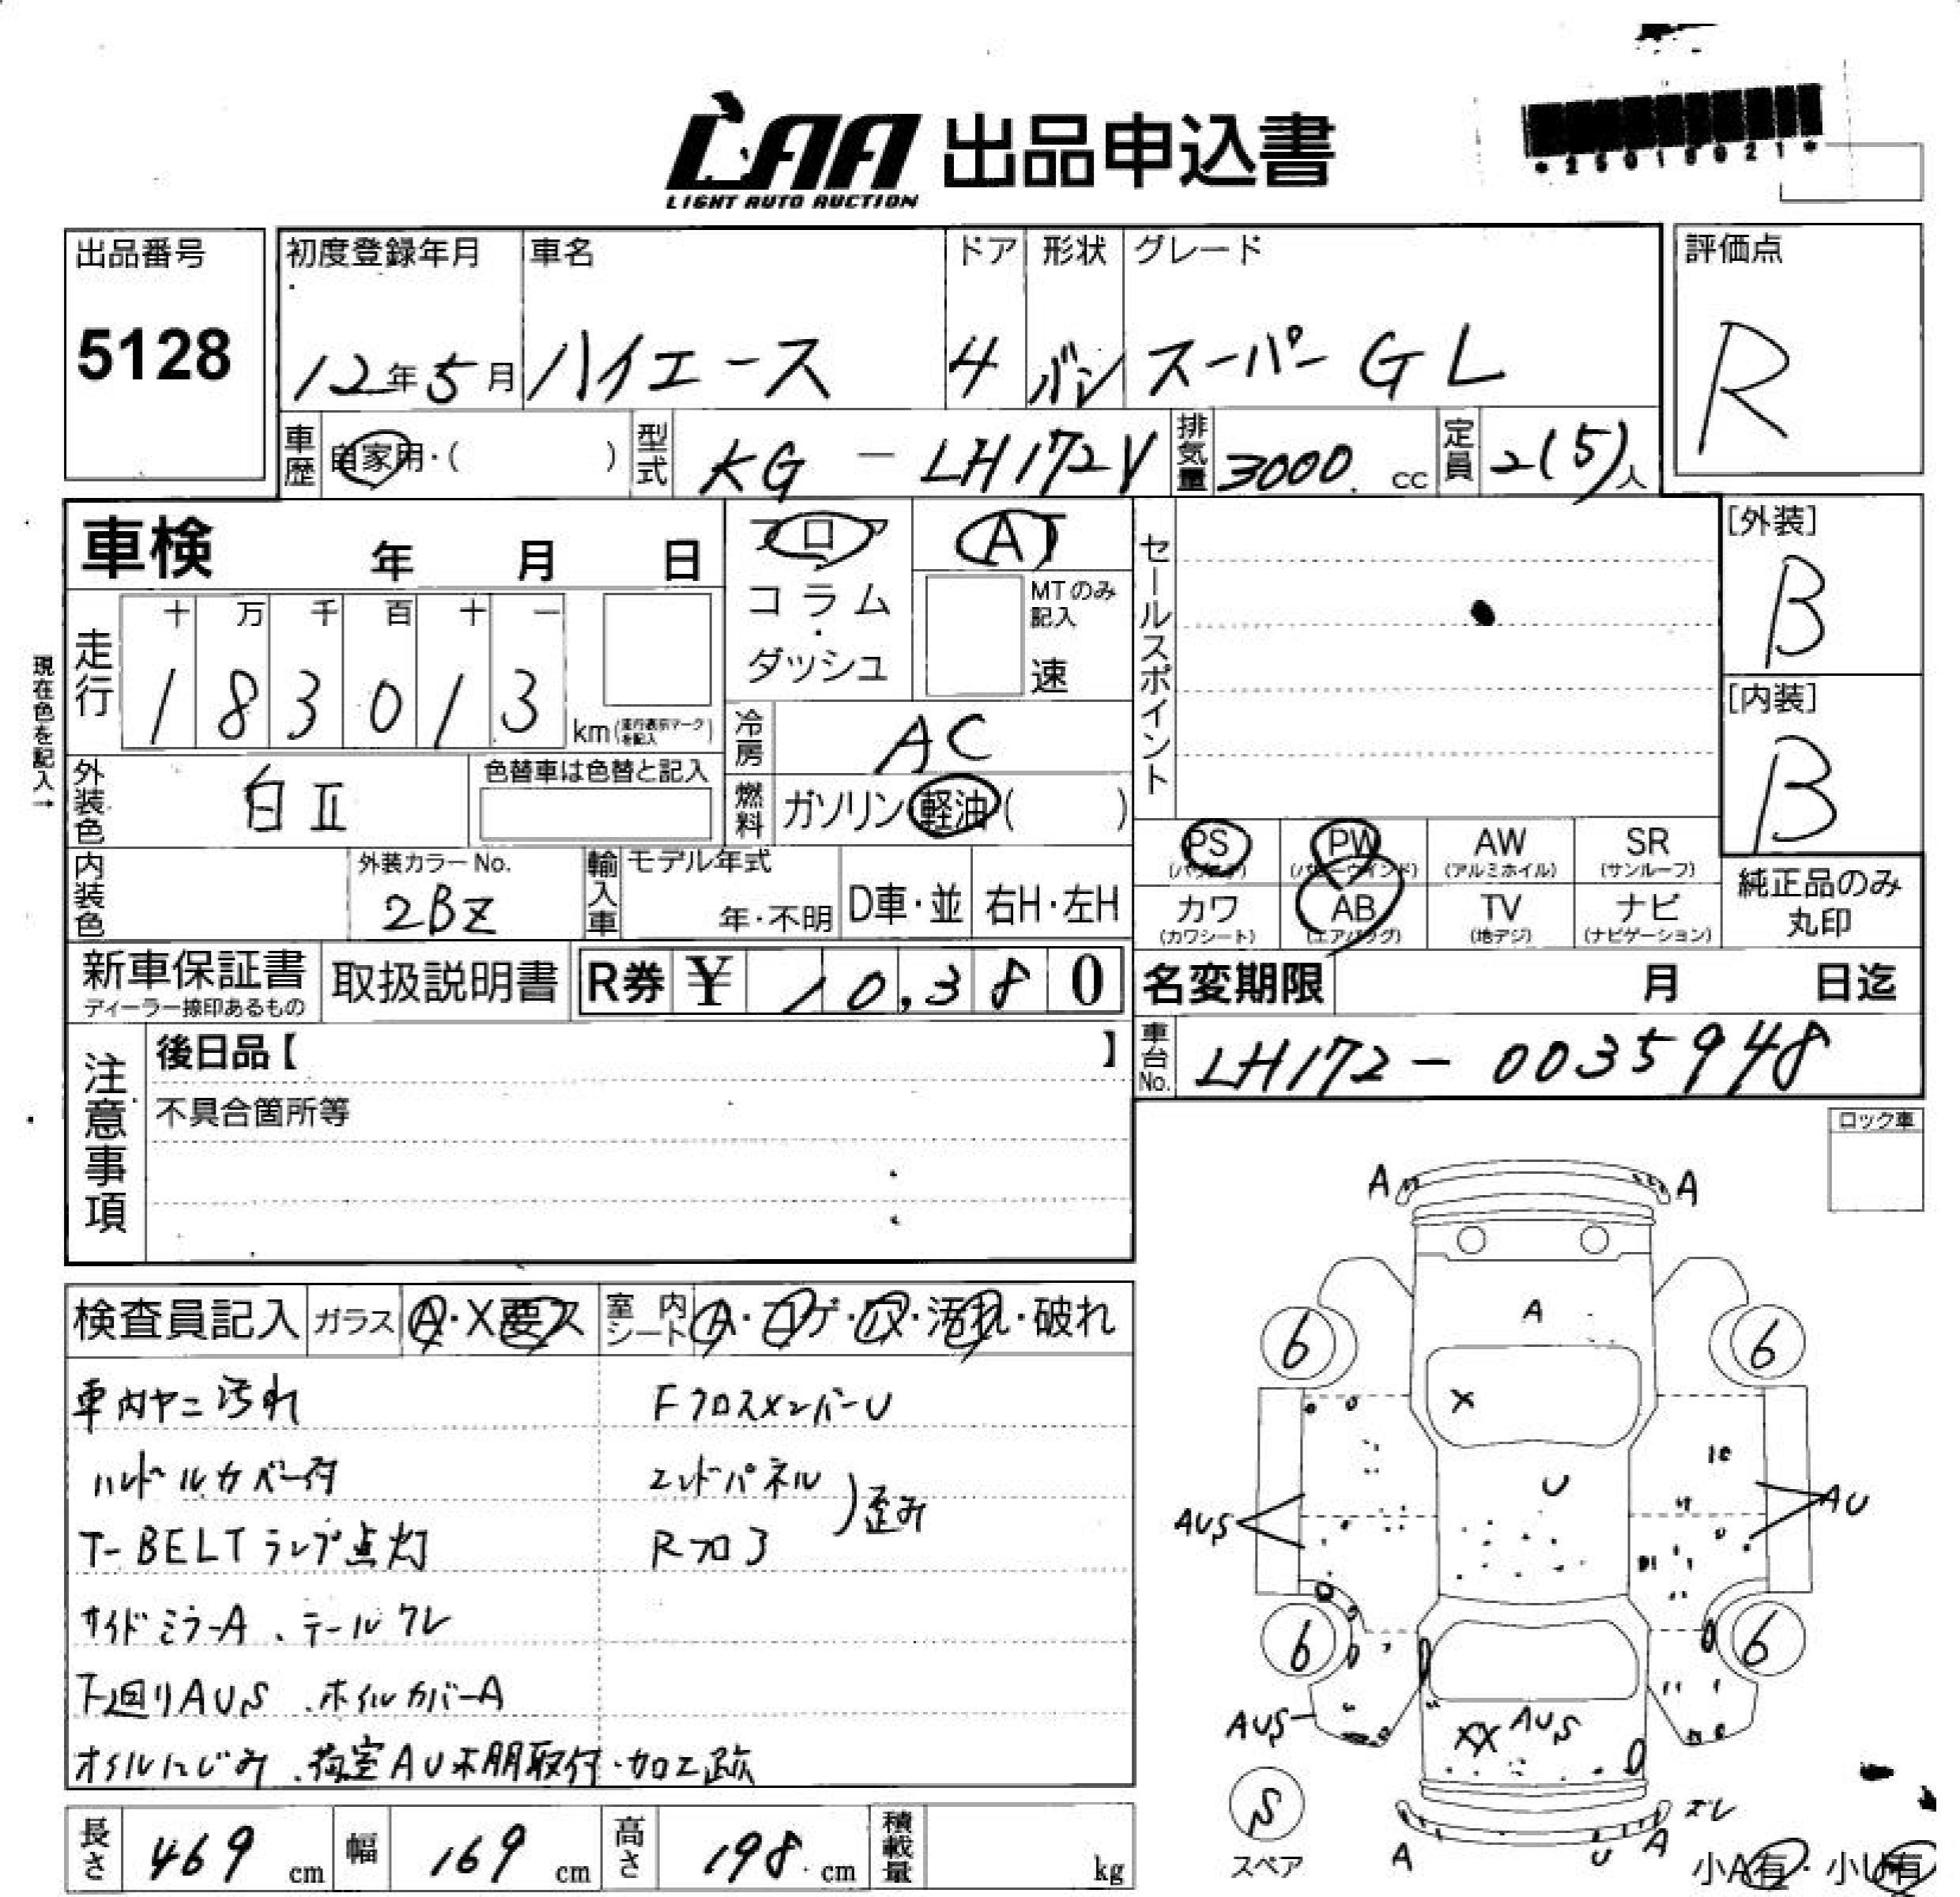 LAA 出品申込書
LIGHT AUTO AUCTION
*25018021*
出品番号
5128
初度登録年月
12年5月
車名
ハイエース
ドア
4
形状
バン
グレード
スーパーGL
評価点
R
車歴
自家用・( )
型式
KG - LH172V
排気量
3000. cc
定員
2(5)人
車検 年 月 日
フロア
コラム
・
ダッシュ
AT
MTのみ記入
速
セールスポイント
[外装]
B
[内装]
B
現在色を記入→
走行
十 万 千 百 十 一
1 8 3 0 1 3
km(走行表示マークを記入)
冷房
AC
外装色
白II
色替車は色替と記入
燃料
ガソリン 軽油 ( )
PS
(パワステ)
PW
(パワーウインド)
AW
(アルミホイル)
SR
(サンルーフ)
カワ
(カワシート)
AB
(エアバッグ)
TV
(地デジ)
ナビ
(ナビゲーション)
純正品のみ
丸印
内装色
外装カラーNo.
2BZ
輸入車
モデル年式
年・不明
D車・並
右H・左H
新車保証書
ディーラー捺印あるもの
取扱説明書
R券 ¥ 10,380
名変期限 月 日迄
車台No.
LH172-0035948
注意事項
後日品【 】
不具合箇所等
ロック車
検査員記入
ガラス A・X要ス
室内シート A・コゲ・穴・汚れ・破れ
車内ヤニ汚れ
ハンドルカバー付
T-BELTランプ点灯
サイドミラーA、テールワレ
下廻りAUS、ホイルカバーA
オイルにじみ、荷室AU木朋取付・加工跡
FクロスメンバーU
エンドパネル
Rフロア
)歪み
A A
6 A 6
X
U
AUS AU
6 6
AUS XX AUS
S
スペア
A U A ズレ
小A有・小U有
長さ 469 cm
幅 169 cm
高さ 198. cm
積載量 kg